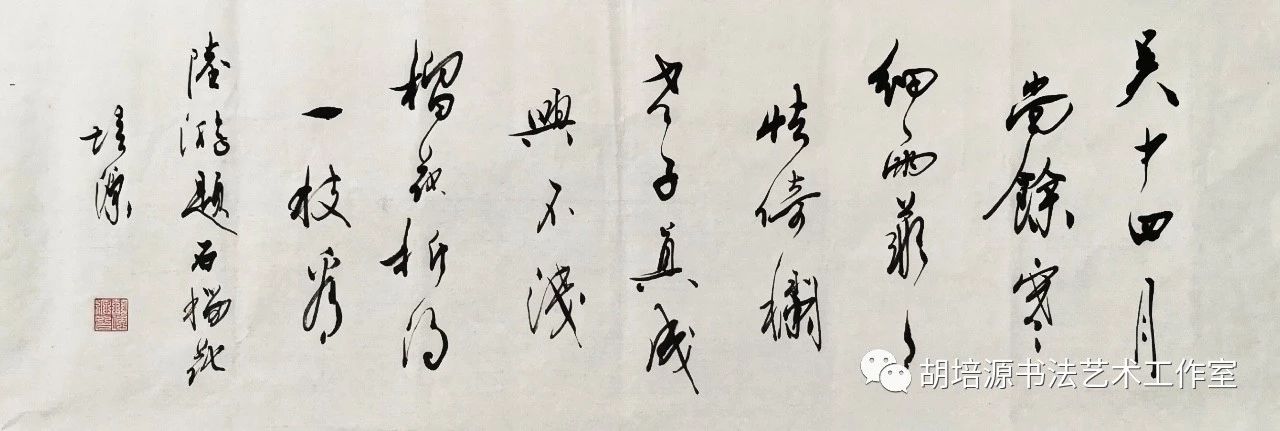 吴中四月
尚餘寒
細雨霏々
怯倚欄
老子真成
興不淺
榴花折得
一枝看
陸游題石榴花
培源
胡培源书法艺术工作室